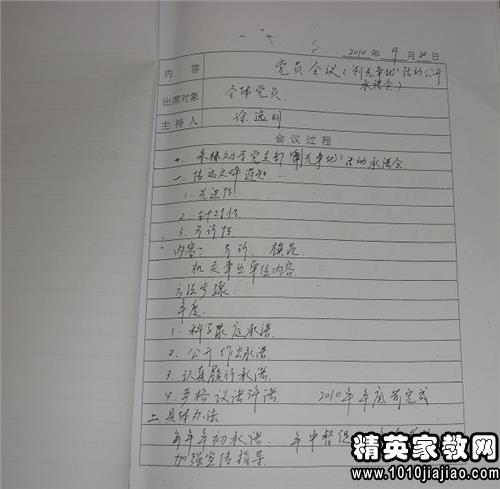 2010 年 9 月 20 日
内 容 党员会议(“创先争优”活动公开
承诺会)
出席对象 全体党员
主持人 徐逸明
会议过程
党支部“创先争优”活动承诺会
一. 传达文件通知
1. 先进性
2. 针对性
3. 可行性
内容:
机关事业单位内容
方法步骤:
年度:
1. 科学 承诺
2. 公开作出承诺
3. 认真履行承诺
4. 严格议诺评诺 2010年年底前完成
二. 具体办法
每年年初承诺. 年中督促
加强宣传指导
精英家教网
www.1010jiajiao.com